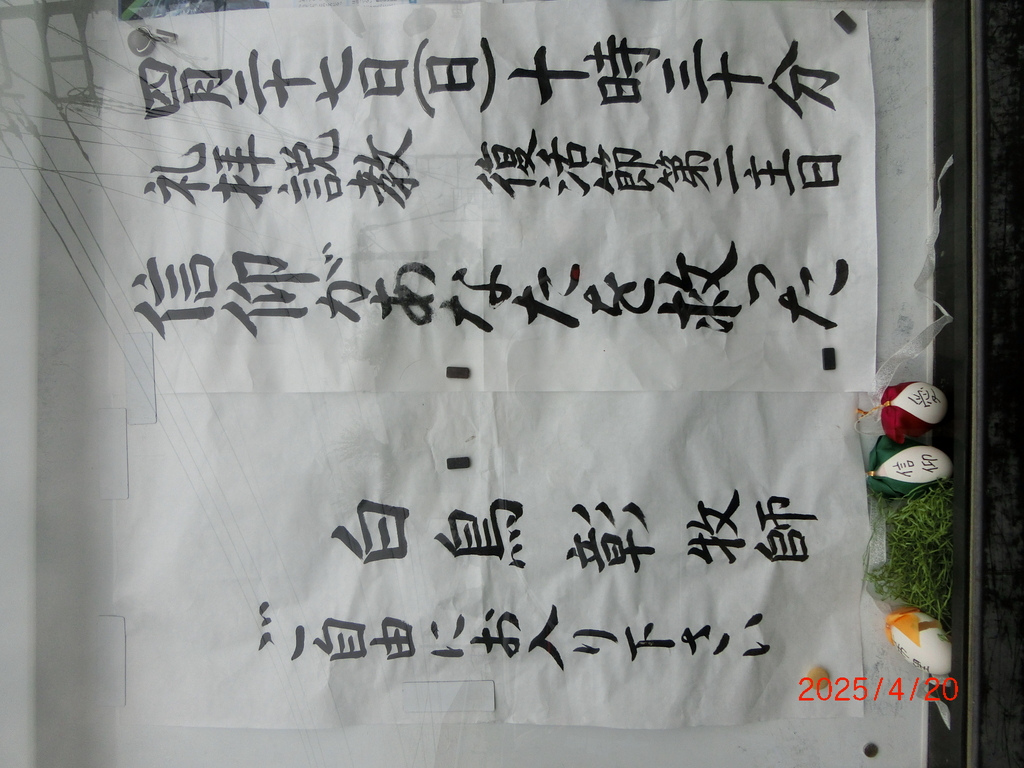 四月二十七日(日)十時三十分
礼拝説教 復活節第二主日
信仰があなたを救った
白鳥 彰 牧師
ご自由にお入り下さい
信仰
2025/4/20